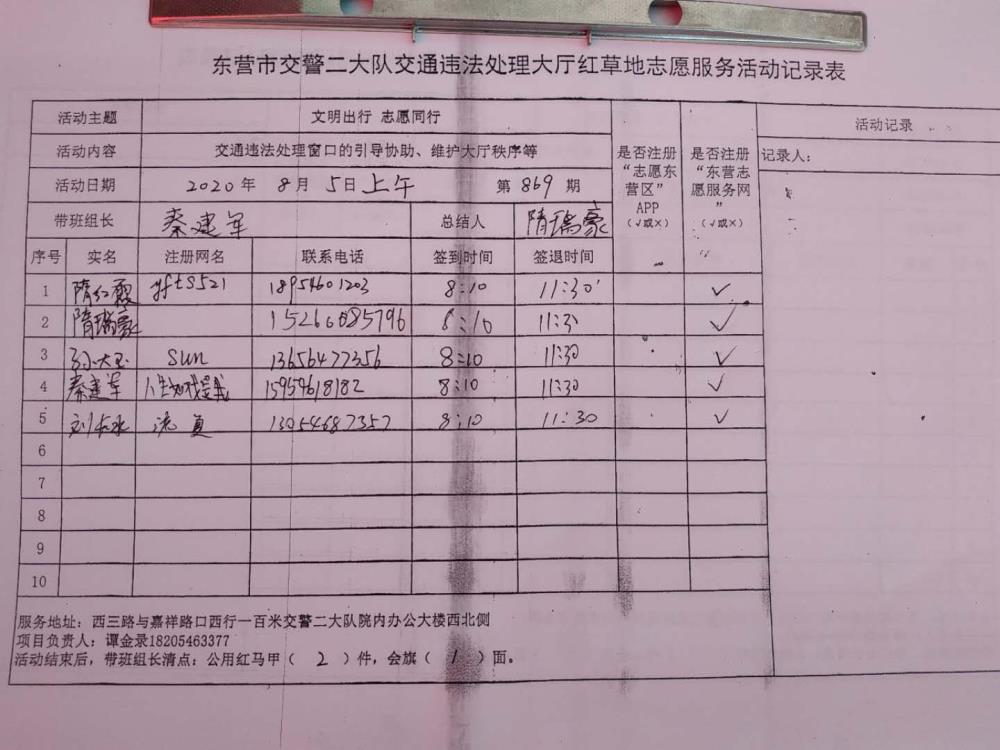 东营市交警二大队交通违法处理大厅红草地志愿服务活动记录表
活动主题 文明出行 志愿同行
活动内容 交通违法处理窗口的引导协助、维护大厅秩序等
活动日期 2020 年 8 月 5 日 上午 第 869 期
带班组长 秦建军 总结人 隋瑞豪
是否注册“志愿东营区”APP（√或×）
是否注册“东营志愿服务网”（√或×）
活动记录
记录人：
序号 实名 注册网名 联系电话 签到时间 签退时间
1 隋红霞 yfts521 18954601203 8:10 11:30 √
2 隋瑞豪 15266085796 8:10 11:30 √
3 孙大玉 sun 13656477356 8:10 11:30 √
4 秦建军 15954618182 8:10 11:30 √
5 刘长水 流夏 13054687357 8:10 11:30 √
6
7
8
9
10
服务地址：西三路与嘉祥路口西行一百米交警二大队院内办公大楼西北侧
项目负责人：谭金录18205463377
活动结束后，带班组长清点：公用红马甲（ 2 ）件，会旗（ 1 ）面。